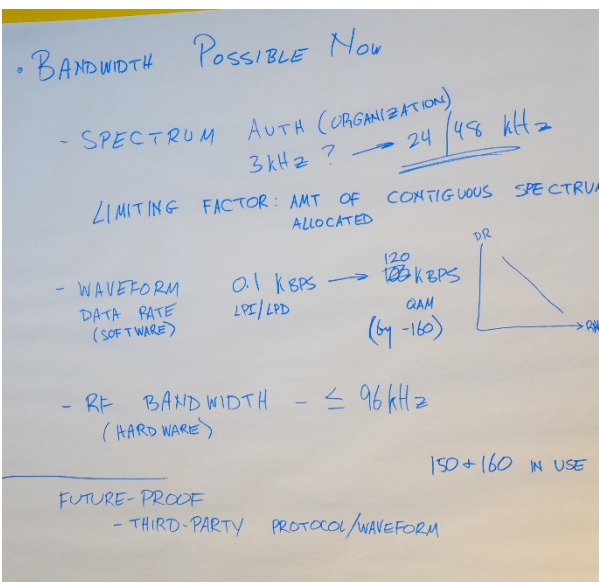 • BANDWIDTH POSSIBLE NOW
- SPECTRUM AUTH (ORGANIZATION)
3 kHz ? → 24/48 kHz
LIMITING FACTOR: AMT OF CONTIGUOUS SPECTRU
ALLOCATED
DR
120
- WAVEFORM 0.1 KBPS → KBPS
DATA RATE LPI/LPD QAM
(SOFTWARE) (6y -160)
- RF BANDWIDTH - ≤ 96 kHz
(HARDWARE)
150 + 160 IN USE
FUTURE-PROOF
- THIRD-PARTY PROTOCOL/WAVEFORM